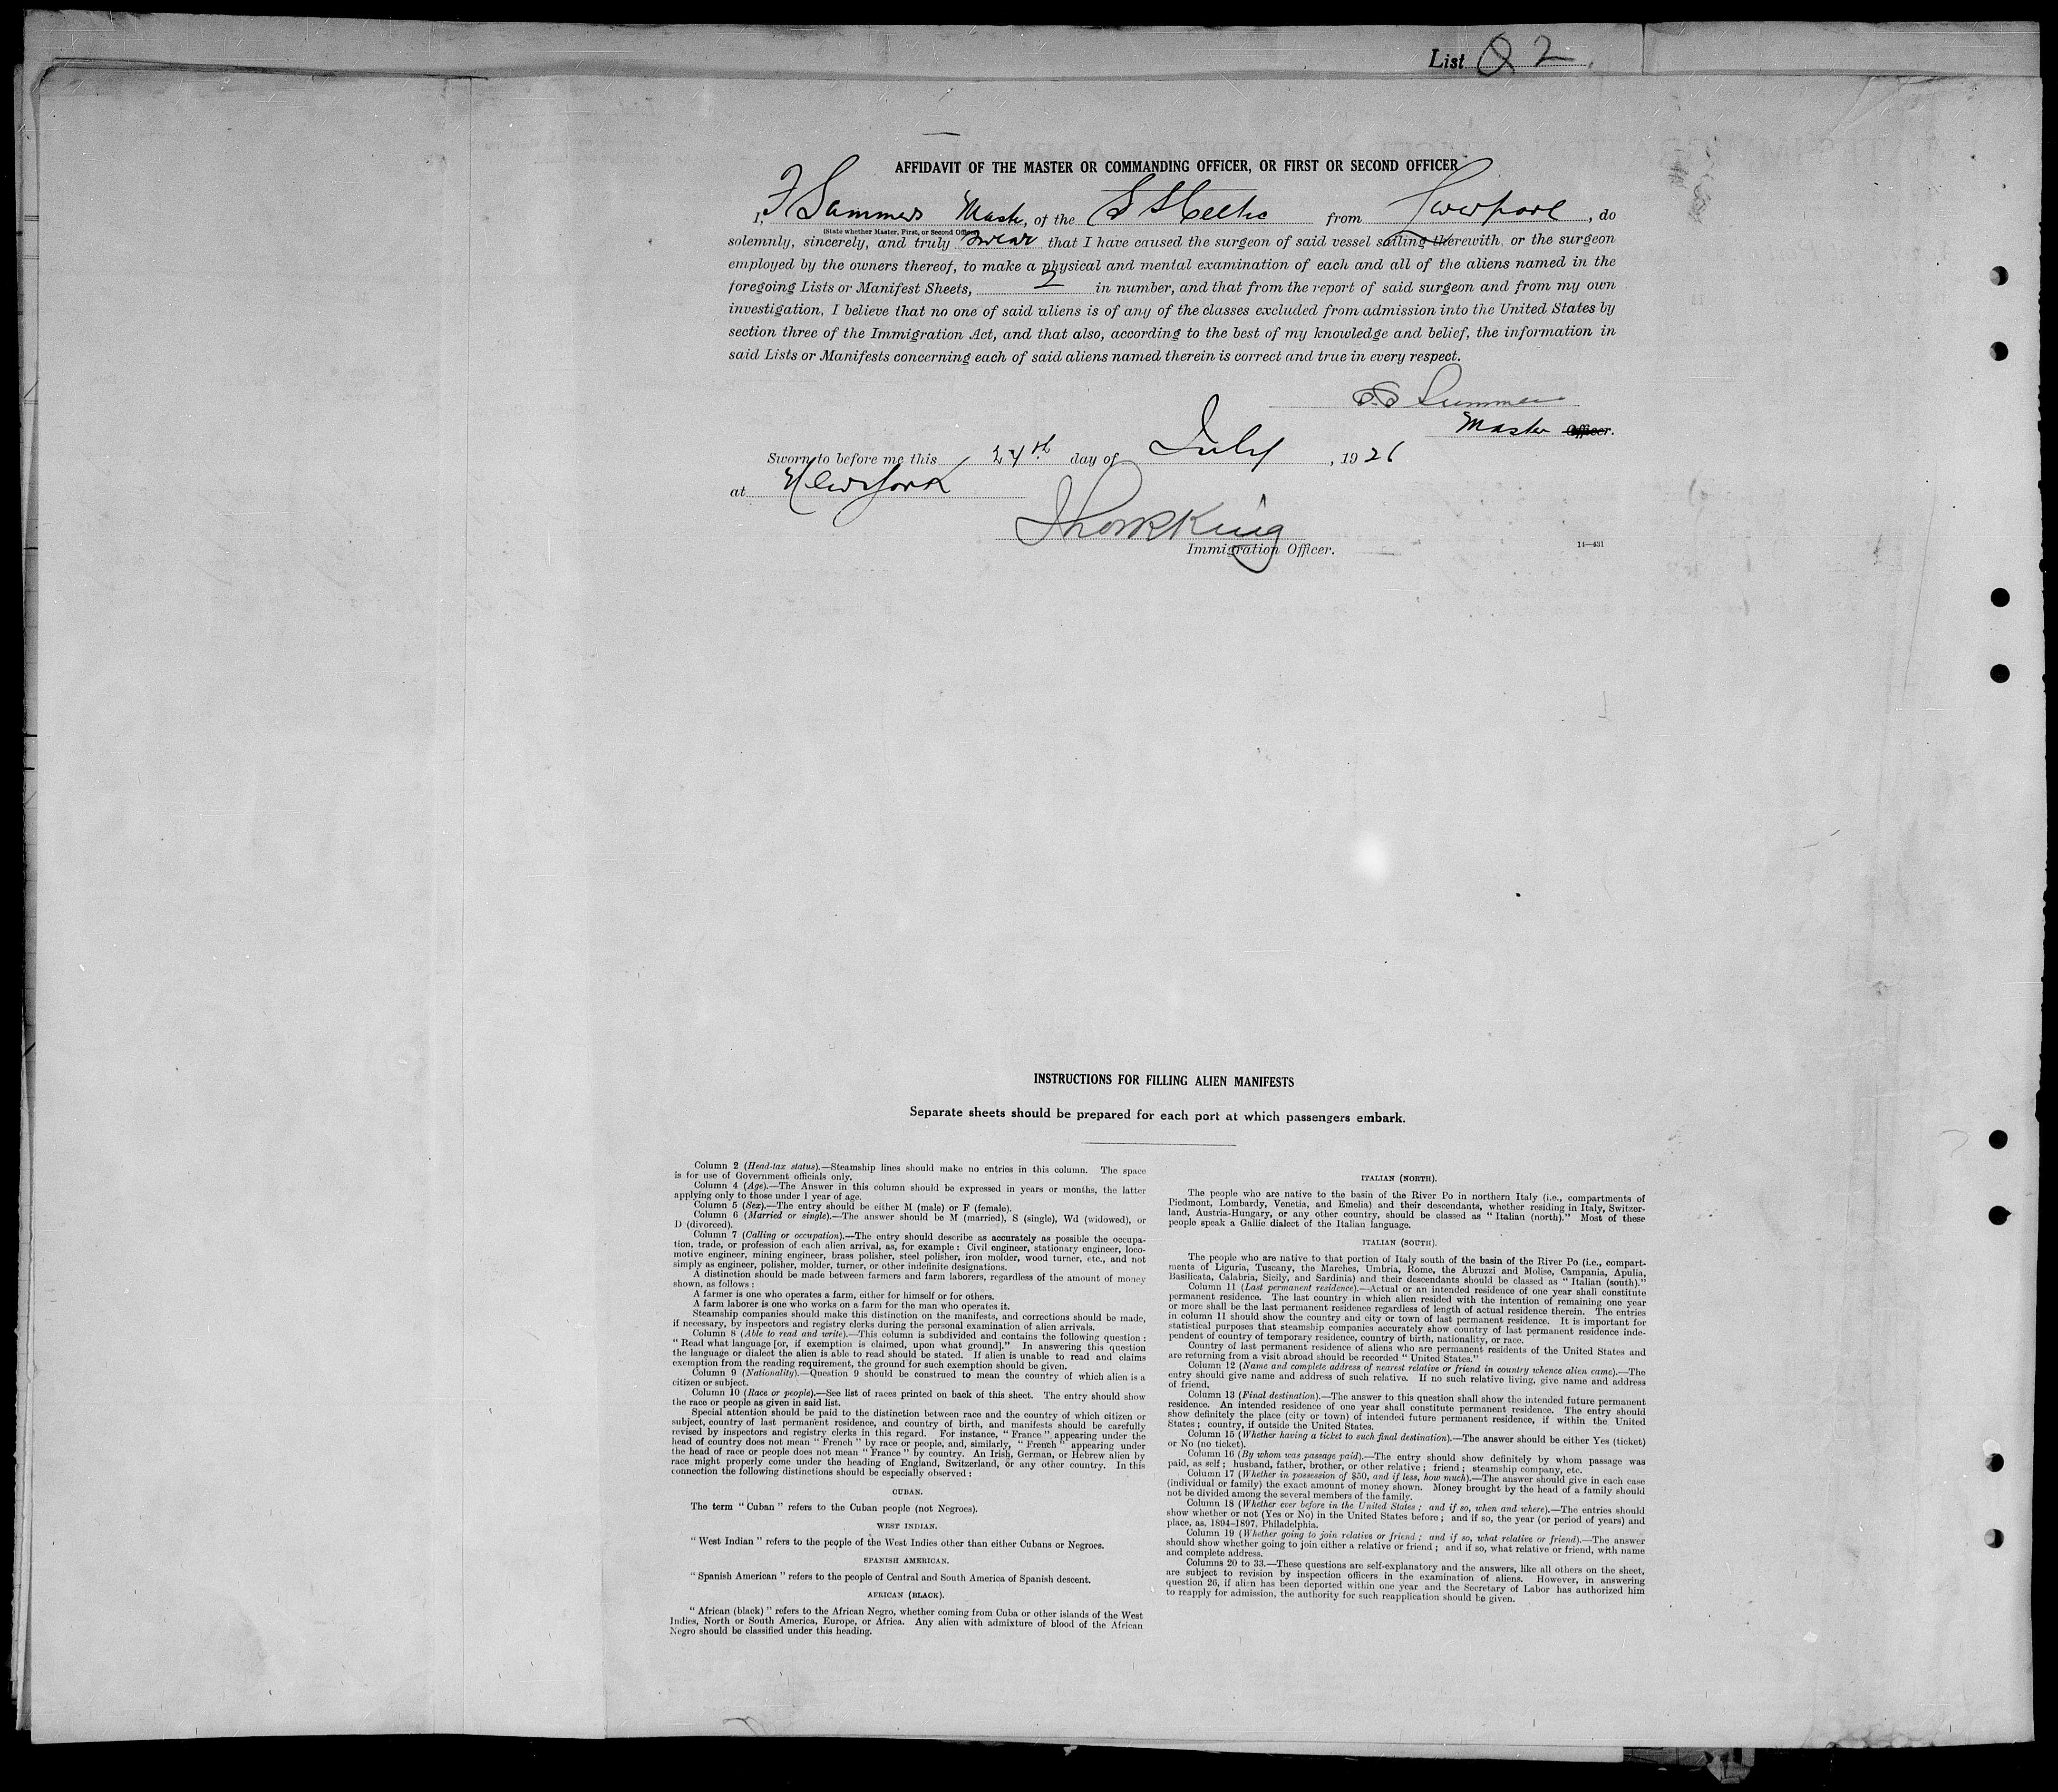 List Q 2
AFFIDAVIT OF THE MASTER OR COMMANDING OFFICER, OR FIRST OR SECOND OFFICER
I, F Summers Master, of the SS Celtic from Liverpool, do
(State whether Master, First, or Second Officer)
solemnly, sincerely, and truly swear that I have caused the surgeon of said vessel sailing therewith, or the surgeon
employed by the owners thereof, to make a physical and mental examination of each and all of the aliens named in the
foregoing Lists or Manifest Sheets, 2 in number, and that from the report of said surgeon and from my own
investigation, I believe that no one of said aliens is of any of the classes excluded from admission into the United States by
section three of the Immigration Act, and that also, according to the best of my knowledge and belief, the information in
said Lists or Manifests concerning each of said aliens named therein is correct and true in every respect.
Summers
Master Officer.
Sworn to before me this 24th day of July, 1926
at New York
King
Immigration Officer.
14—431
INSTRUCTIONS FOR FILLING ALIEN MANIFESTS
Separate sheets should be prepared for each port at which passengers embark.
Column 2 (Head-tax status).—Steamship lines should make no entries in this column. The space
is for use of Government officials only.
Column 4 (Age).—The Answer in this column should be expressed in years or months, the latter
applying only to those under 1 year of age.
Column 5 (Sex).—The entry should be either M (male) or F (female).
Column 6 (Married or single).—The answer should be M (married), S (single), Wd (widowed), or
D (divorced).
Column 7 (Calling or occupation).—The entry should describe as accurately as possible the occupa-
tion, trade, or profession of each alien arrival, as, for example: Civil engineer, stationary engineer, loco-
motive engineer, mining engineer, brass polisher, steel polisher, iron molder, wood turner, etc., and not
simply as engineer, polisher, molder, turner, or other indefinite designations.
A distinction should be made between farmers and farm laborers, regardless of the amount of money
shown, as follows:
A farmer is one who operates a farm, either for himself or for others.
A farm laborer is one who works on a farm for the man who operates it.
Steamship companies should make this distinction on the manifests, and corrections should be made,
if necessary, by inspectors and registry clerks during the personal examination of alien arrivals.
Column 8 (Able to read and write).—This column is subdivided and contains the following question:
"Read what language [or, if exemption is claimed, upon what ground]." In answering this question
the language or dialect the alien is able to read should be stated. If alien is unable to read and claims
exemption from the reading requirement, the ground for such exemption should be given.
Column 9 (Nationality).—Question 9 should be construed to mean the country of which alien is a
citizen or subject.
Column 10 (Race or people).—See list of races printed on back of this sheet. The entry should show
the race or people as given in said list.
Special attention should be paid to the distinction between race and the country of which citizen or
subject, country of last permanent residence, and country of birth, and manifests should be carefully
revised by inspectors and registry clerks in this regard. For instance, "France" appearing under the
head of country does not mean "French" by race or people, and, similarly, "French" appearing under
the head of race or people does not mean "France" by country. An Irish, German, or Hebrew alien by
race might properly come under the heading of England, Switzerland, or any other country. In this
connection the following distinctions should be especially observed:
CUBAN.
The term "Cuban" refers to the Cuban people (not Negroes).
WEST INDIAN.
"West Indian" refers to the people of the West Indies other than either Cubans or Negroes.
SPANISH AMERICAN.
"Spanish American" refers to the people of Central and South America of Spanish descent.
AFRICAN (BLACK).
"African (black)" refers to the African Negro, whether coming from Cuba or other islands of the West
Indies, North or South America, Europe, or Africa. Any alien with admixture of blood of the African
Negro should be classified under this heading.
ITALIAN (NORTH).
The people who are native to the basin of the River Po in northern Italy (i.e., compartments of
Piedmont, Lombardy, Venetia, and Emelia) and their descendants, whether residing in Italy, Switzer-
land, Austria-Hungary, or any other country, should be classed as "Italian (north)." Most of these
people speak a Gallic dialect of the Italian language.
ITALIAN (SOUTH).
The people who are native to that portion of Italy south of the basin of the River Po (i.e., compart-
ments of Liguria, Tuscany, the Marches, Umbria, Rome, the Abruzzi and Molise, Campania, Apulia,
Basilicata, Calabria, Sicily, and Sardinia) and their descendants should be classed as "Italian (south)."
Column 11 (Last permanent residence).—Actual or an intended residence of one year shall constitute
permanent residence. The last country in which alien resided with the intention of remaining one year
or more shall be the last permanent residence regardless of length of actual residence therein. The entries
in column 11 should show the country and city or town of last permanent residence. It is important for
statistical purposes that steamship companies accurately show country of last permanent residence inde-
pendent of country of temporary residence, country of birth, nationality, or race.
Country of last permanent residence of aliens who are permanent residents of the United States and
are returning from a visit abroad should be recorded "United States."
Column 12 (Name and complete address of nearest relative or friend in country whence alien came).—The
entry should give name and address of such relative. If no such relative living, give name and address
of friend.
Column 13 (Final destination).—The answer to this question shall show the intended future permanent
residence. An intended residence of one year shall constitute permanent residence. The entry should
show definitely the place (city or town) of intended future permanent residence, if within the United
States; country, if outside the United States.
Column 15 (Whether having a ticket to such final destination).—The answer should be either Yes (ticket)
or No (no ticket).
Column 16 (By whom was passage paid).—The entry should show definitely by whom passage was
paid, as self; husband, father, brother, or other relative; friend; steamship company, etc.
Column 17 (Whether in possession of $50, and if less, how much).—The answer should give in each case
(individual or family) the exact amount of money shown. Money brought by the head of a family should
not be divided among the several members of the family.
Column 18 (Whether ever before in the United States; and if so, when and where).—The entries should
show whether or not (Yes or No) in the United States before; and if so, the year (or period of years) and
place, as, 1894-1897, Philadelphia.
Column 19 (Whether going to join relative or friend; and if so, what relative or friend).—The answer
should show whether going to join either a relative or friend; and if so, what relative or friend, with name
and complete address.
Columns 20 to 33.—These questions are self-explanatory and the answers, like all others on the sheet,
are subject to revision by inspection officers in the examination of aliens. However, in answering
question 26, if alien has been deported within one year and the Secretary of Labor has authorized him
to reapply for admission, the authority for such reapplication should be given.